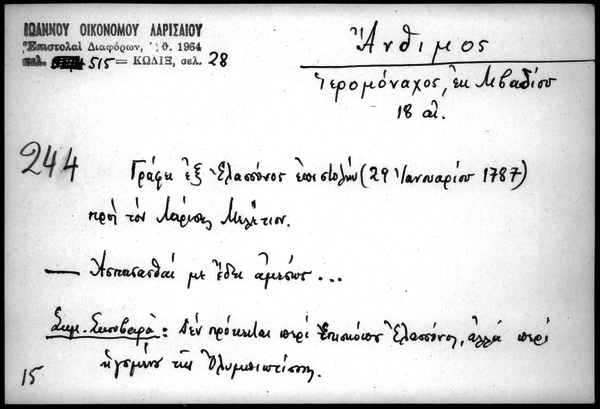 ΙΩΑΝΝΟΥ ΟΙΚΟΝΟΜΟΥ ΛΑΡΙΣΑΙΟΥ
Ἐπιστολαὶ Διαφόρων, 1964
σελ. 515 = ΚΩΔΙΞ, σελ. 28
Ἄνθιμος
Ἱερομόναχος, ἐκ Λιβαδίου
18 αἰ.
244
Γράφει ἐξ Ἐλασσόνος ἐπιστολήν (29 Ἰανουαρίου 1787)
πρὸς τὸν Λαρίσης Μελέτιον.
— Ἀσπάσασθαί με ἔδει ἀμέσως...
Σημ. Σκουβαρᾶ: Δὲν πρόκειται περὶ Ἐπισκόπου Ἐλασσόνος, ἀλλὰ περὶ
ἡγουμένου τῆς Ὀλυμπιωτίσσης.
15